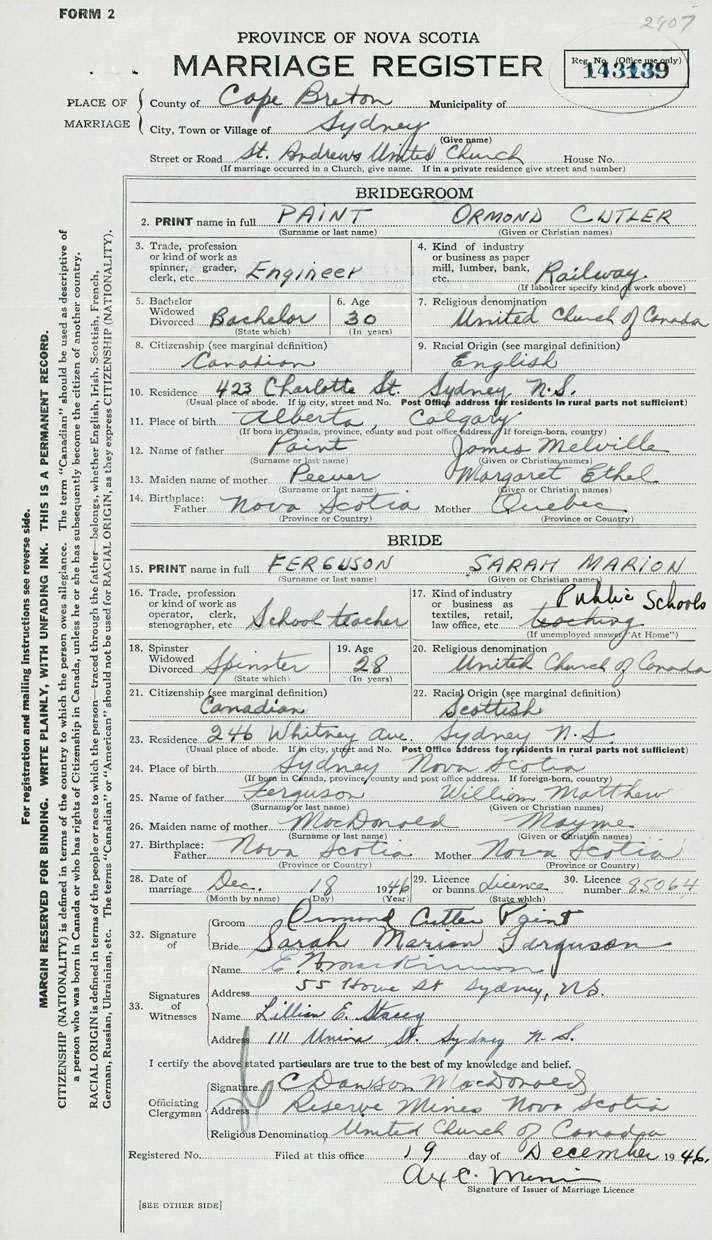 FORM 2
2907
PROVINCE OF NOVA SCOTIA
MARRIAGE REGISTER
Reg. No. (Office use only)
143139
PLACE OF MARRIAGE
County of Cape Breton Municipality of
City, Town or Village of Sydney
(Give name)
Street or Road St. Andrews United Church House No.
(If marriage occurred in a Church, give name. If in a private residence give street and number)
BRIDEGROOM
2. PRINT name in full PAINT ORMOND CUTLER
(Surname or last name) (Given or Christian names)
3. Trade, profession or kind of work as spinner, grader, clerk, etc. Engineer
4. Kind of industry or business as paper mill, lumber, bank, etc. Railway
(If laborer specify kind of work above)
5. Bachelor Widowed Divorced Bachelor
(State which)
6. Age 30
(In years)
7. Religious denomination
United Church of Canada
8. Citizenship (see marginal definition)
Canadian
9. Racial Origin (see marginal definition)
English
10. Residence 423 Charlotte St. Sydney N.S.
(Usual place of abode. If in city, street and No. Post Office address for residents in rural parts not sufficient)
11. Place of birth Alberta, Calgary
(If born in Canada, province, county and post office address. If foreign-born, country)
12. Name of father Paint James Melville
(Surname or last name) (Given or Christian names)
13. Maiden name of mother Peever Margaret Ethel
(Surname or last name) (Given or Christian names)
14. Birthplace: Father Nova Scotia Mother Quebec
(Province or Country) (Province or Country)
BRIDE
15. PRINT name in full FERGUSON SARAH MARION
(Surname or last name) (Given or Christian name)
16. Trade, profession or kind of work as operator, clerk, stenographer, etc School teacher
17. Kind of industry or business as textiles, retail, law office, etc Public Schools
teaching
(If unemployed answer "At Home")
18. Spinster Widowed Divorced Spinster
(State which)
19. Age 28
(In years)
20. Religious denomination
United Church of Canada
21. Citizenship (see marginal definition)
Canadian
22. Racial Origin (see marginal definition)
Scottish
23. Residence 246 Whitney Ave. Sydney N.S.
(Usual place of abode. If in city, street and No. Post Office address for residents in rural parts not sufficient)
24. Place of birth Sydney Nova Scotia
(If born in Canada, province, county and post office address. If foreign-born, country)
25. Name of father Ferguson William Matthew
(Surname or last name) (Given or Christian names)
26. Maiden name of mother MacDonald Mayme
(Surname or last name) (Given or Christian names)
27. Birthplace: Father Nova Scotia Mother Nova Scotia
(Province or Country) (Province or Country)
28. Date of marriage Dec. 18 1946
(Month by name) (Day) (Year)
29. Licence or banns Licence
(State which)
30. Licence number 85064
32. Signature of
Groom Ormond Cutler Paint
Bride Sarah Marion Ferguson
33. Signatures of Witnesses
Name E. MacKinnon
Address 55 Howe St Sydney, N.S.
Name Lillian E. Stacey
Address 111 Union St. Sydney N.S.
I certify the above stated particulars are true to the best of my knowledge and belief.
Officiating Clergyman
Signature C Dawson MacDonald
Address Reserve Mines Nova Scotia
Religious Denomination United Church of Canada
Registered No. Filed at this office 19 day of December 1946.
Signature of Issuer of Marriage Licence
[SEE OTHER SIDE]
For registration and mailing instructions see reverse side.
MARGIN RESERVED FOR BINDING. WRITE PLAINLY, WITH UNFADING INK. THIS IS A PERMANENT RECORD.
CITIZENSHIP (NATIONALITY) is defined in terms of the country to which the person owes allegiance. The term "Canadian" should be used as descriptive of
a person who was born in Canada or who has rights of Citizenship in Canada, unless he or she has subsequently become the citizen of another country.
RACIAL ORIGIN is defined in terms of the people or race to which the person—traced through the father—belongs, whether English, Irish, Scottish, French,
German, Russian, Ukrainian, etc. The terms "Canadian" or "American" should not be used for RACIAL ORIGIN, as they express CITIZENSHIP (NATIONALITY).